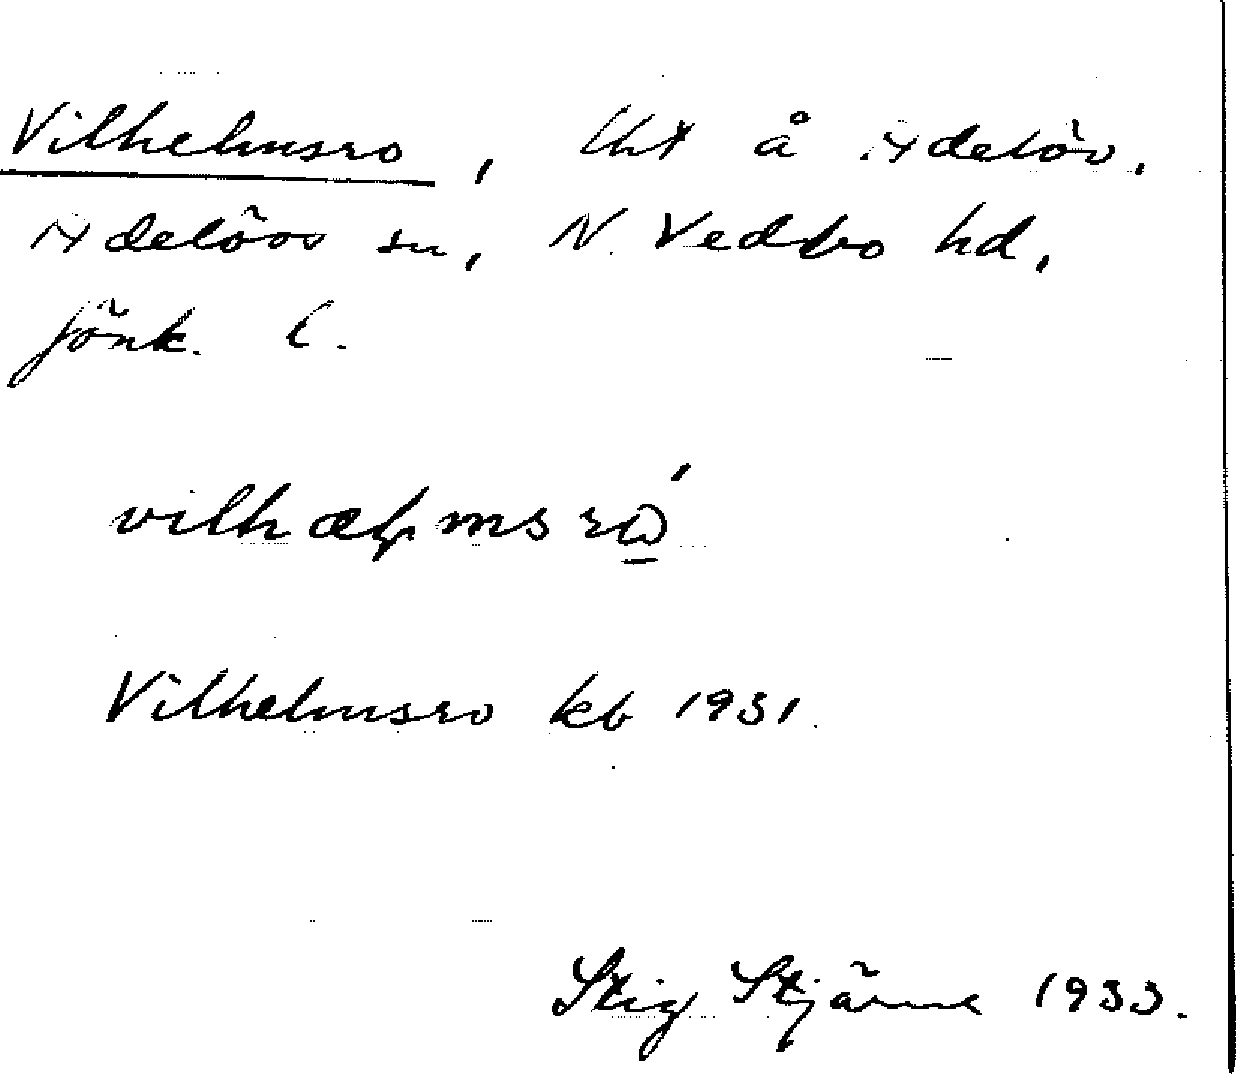 Vilhelmsro, lht å Adelöv,
Adelövs sn, N. Vedbo hd,
Jönk. l.
vilhælmsró
Vilhelmsro kb 1931.
Stig Stjärne 1933.